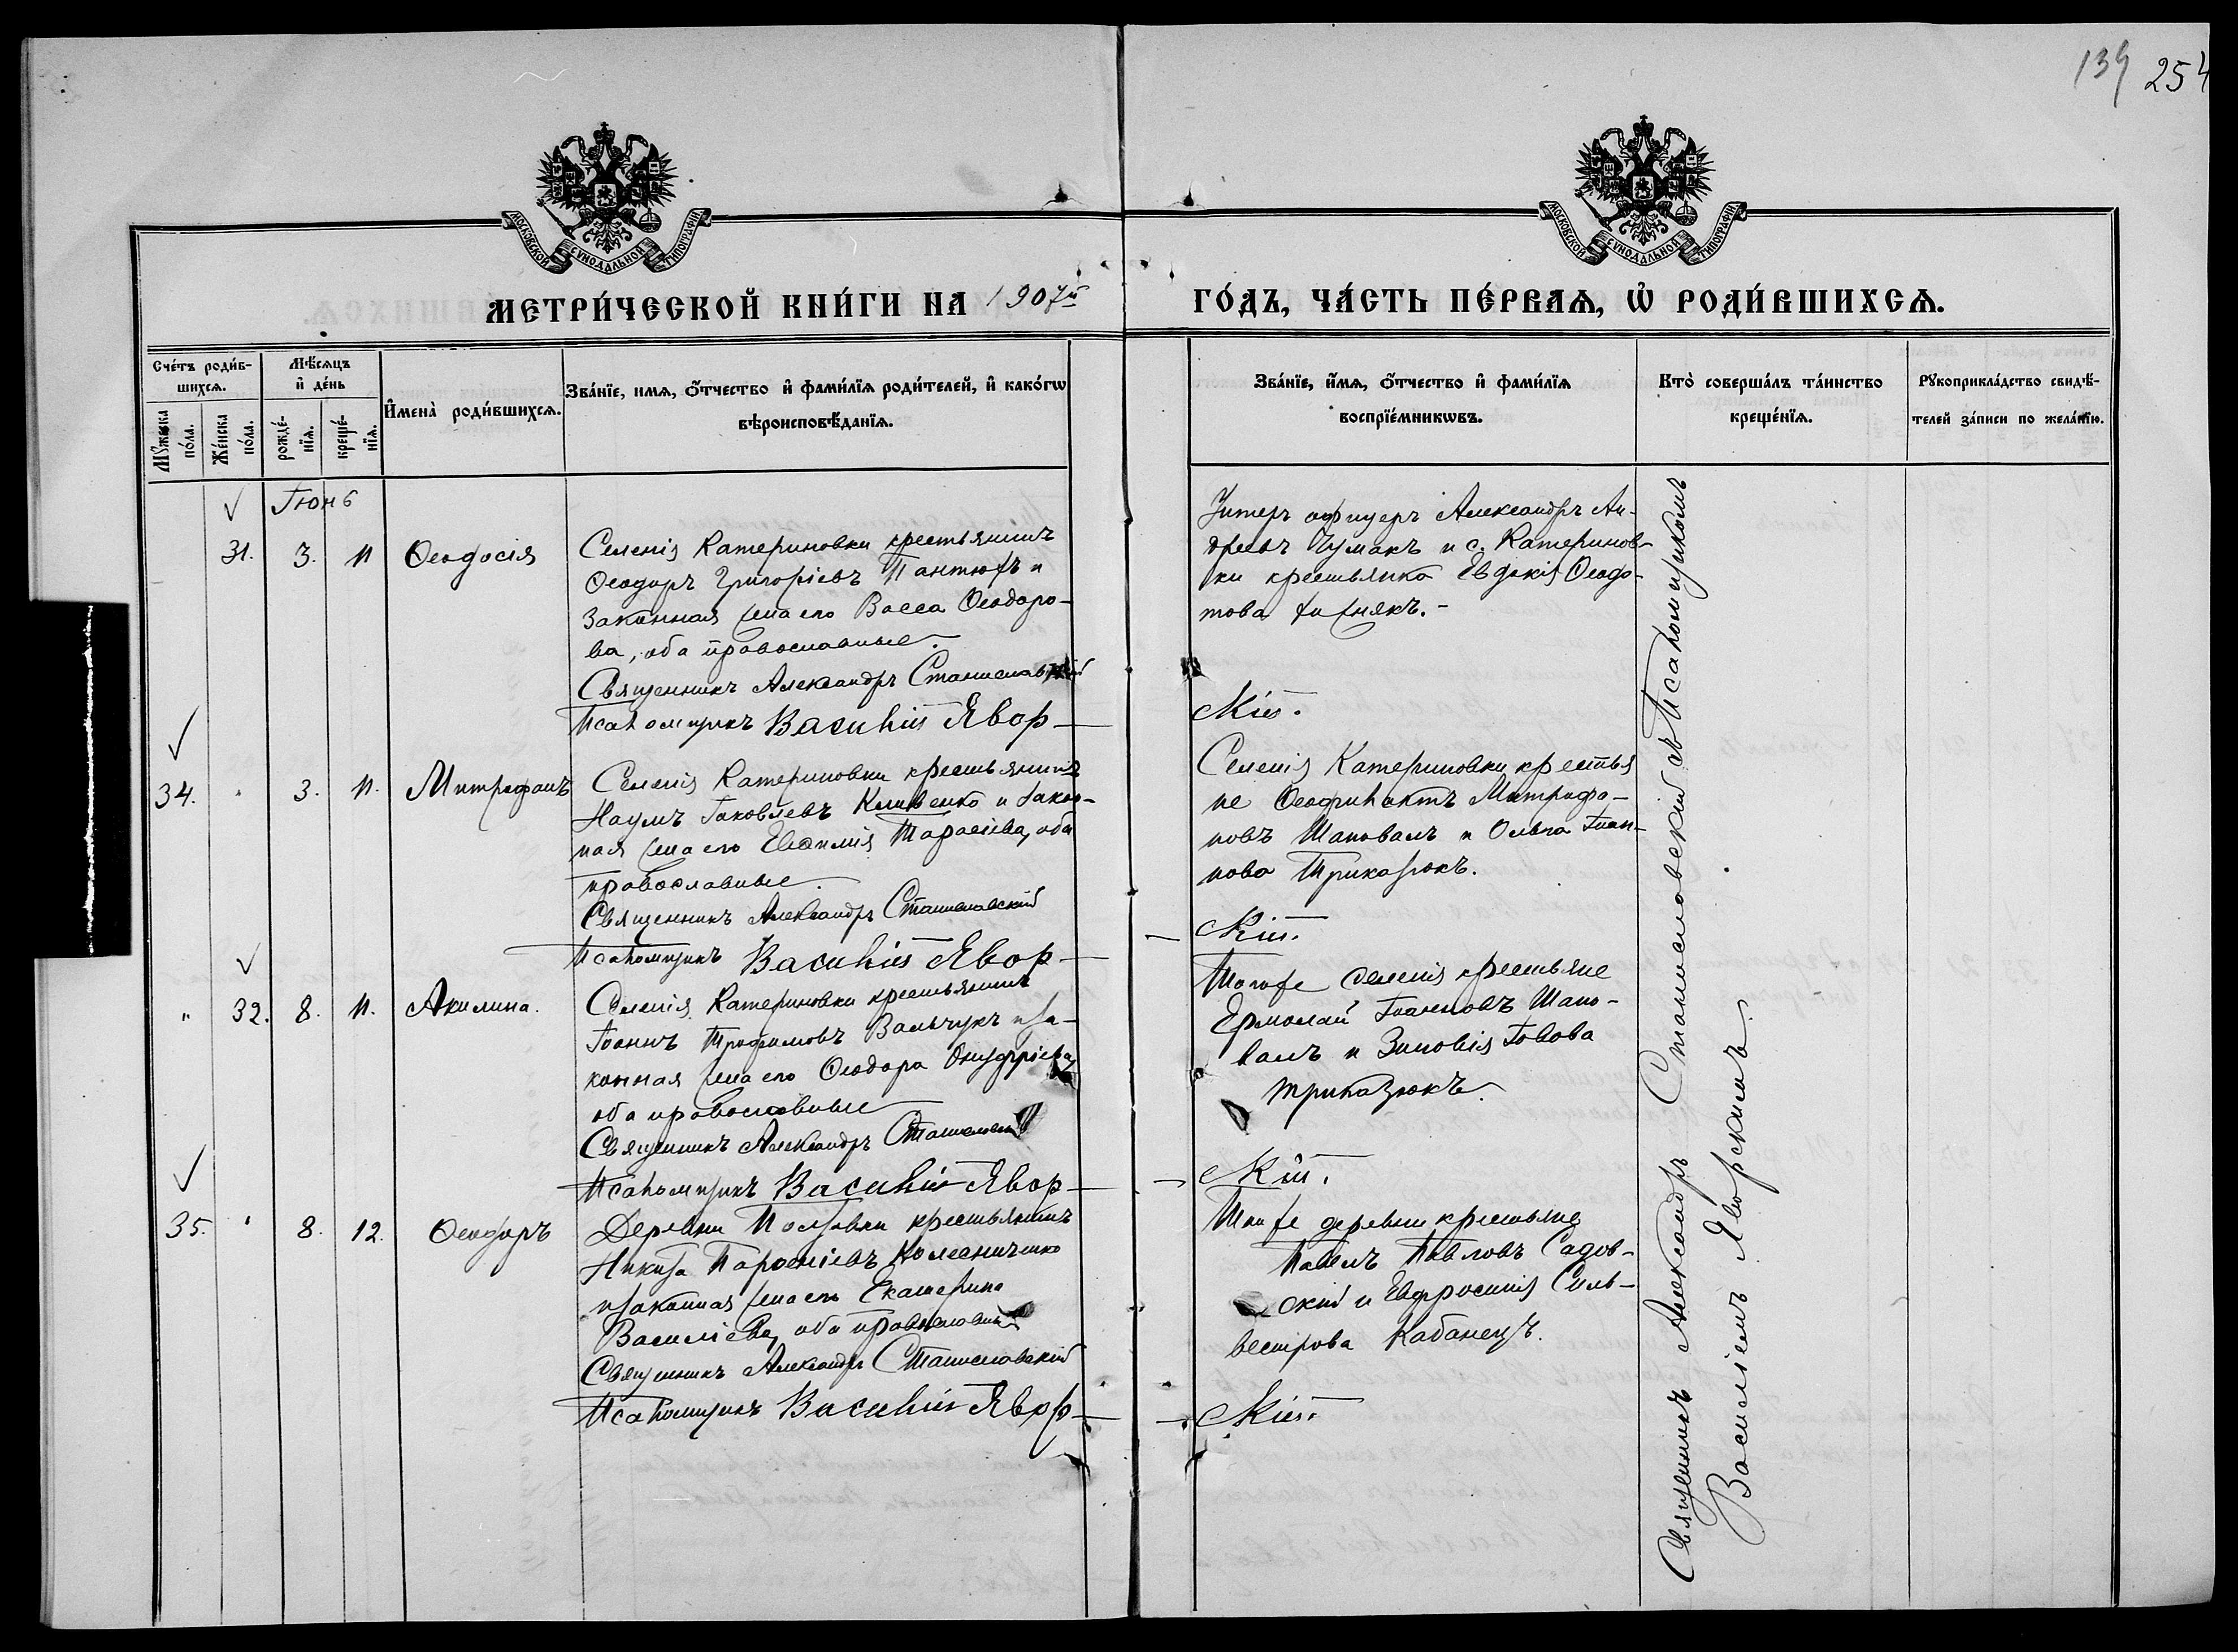 139 254
МОСКОВСКОЙ СѴНОДАЛЬНОЙ ТИПОГРАФІИ
МОСКОВСКОЙ СѴНОДАЛЬНОЙ ТИПОГРАФІИ
МЕТРИ́ЧЕСКОЙ КНИ́ГИ НА 1907й ГО́ДЪ, ЧА́СТЬ ПЕ́РВАѦ, Ѡ҆ РОДИ́ВШИХСѦ.
Сче́тъ роди́в-
шихсѧ.
Мѣ́сѧцъ
и҆ де́нь
Мꙋ́жеска
по́ла.
Же́нска
по́ла.
рожде́-
нїѧ.
креще́-
нїѧ.
И҆мена̀ роди́вшихсѧ.
Зва́нїе, имѧ, ѻ҆́тчество и҆ фами́лїѧ роди́телей, и҆ како́гѡ
вѣроисповѣ́данїѧ.
Зва́нїе, и҆́мѧ, ѻ҆́тчество и҆ фами́лїѧ
воспрїе́мникѡвъ.
Кто̀ соверша́лъ та́инство
креще́нїѧ.
Рꙋкоприкла́дство свидѣ́-
телей за́писи по жела́нїю.
Іюнь
31. 3. 11 Ѳеодосія
Селенія Катериновки крестьянинъ
Ѳеодоръ Григоріевъ Пантюхъ и
законная жена его Васса Ѳеодоро-
ва, оба православные.
Священникъ Александръ Станиславскій
Псаломщикъ Василій Явор-
Унтеръ офицеръ Александръ Ан-
дреевъ Чумакъ и с. Катеринов-
ки крестьянка Евдокія Ѳеодо-
това
скій.
34. 3. 11. Митрофанъ
Селенія Катериновки крестьянинъ
Наумъ Іаковлевъ Клименко и закон-
ная жена его Евфимія Тарасіева, оба
православные.
Священникъ Александръ Станиславскій
Псаломщикъ Василій Явор-
Селенія Катериновки крестья
не Ѳеофилактъ Митрофа-
новъ Шаповалъ и Ольга Іоан-
нова Триказюкъ.
скій.
" 32. 8. 11. Акилина.
Селенія Катериновки крестьянинъ
Іоаннъ Трофимовъ Вальчукъ и за-
конная жена его Ѳеодора Онуфріева,
оба православные
Священникъ Александръ Станиславскій
Псаломщикъ Василій Явор-
Тогоже селенія крестьяне
Ермолай Іоанновъ Шапо-
валъ и Зиновія Іовова
Триказюкъ.
скій.
35. " 8. 12. Ѳеодоръ
Деревни крестьянинъ
Никита Парѳеніевъ Колесниченко
и законная жена его Екатерина
Василіева, оба православные
Священникъ Александръ Станиславскій
Псаломщикъ Василій Явор-
Тойже деревни крестьяне
Павелъ Павловъ Садов-
скій и Евфросинія Силь-
вестрова Кабанецъ.
скій.
Священникъ Александръ Станиславскій съ Псаломщикомъ
Василіемъ Яворскимъ.